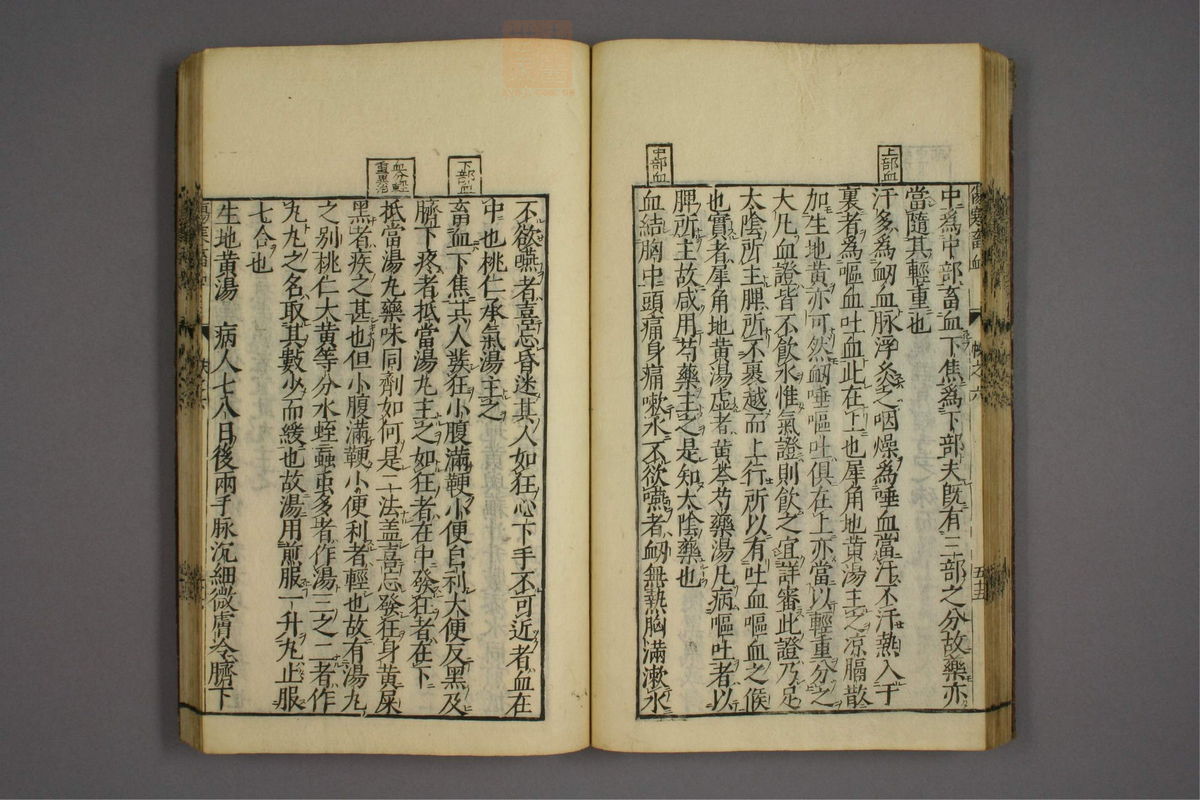 上部血
中部血
中爲中部畜血下焦爲下部夫既有三部之分故藥亦
當隨其輕重也
汗多為衂血脉浮灸之咽燥為唾血當汗不汗熱入于
裏者為嘔血吐血此在上也犀角地黄湯主之凉膈散
加生地黄亦可然衂唾嘔吐俱在上亦當以輕重分之
大凡血證皆不飲水惟氣證則飲之宜詳審此證乃足
太陰所主脾所不裹越而上行所以有吐血嘔血之候
也實者犀角地黄湯虚者黄芩芍藥湯凡病嘔吐者以
脾所主故咸用芍藥主之是知太陰藥也
血結胸中頭痛身痛嗽水不欲嚥者衂無熱胸滿漱水
下部血
血分輕
重異治
不欲嚥者喜忘昏迷其人如狂心下手不可近者血在
中也桃仁承氣湯主之
畜血下焦其人發狂小腹滿鞕小便自利大便反黑及
臍下疼者抵當湯丸主之如狂者在中發狂者在下
抵當湯丸藥味同劑如何是二法盖喜忘發狂身黄屎
黑者疾之甚也但小腹滿鞕小便利者輕也故有湯丸
之别桃仁大黄等分水蛭䖟虫多者作湯三之二者作
丸丸之名取其數少而緩也故湯用煎服一升丸止服
七合也
生地黄湯　病人七八日後兩手脉沉細微膚冷臍下